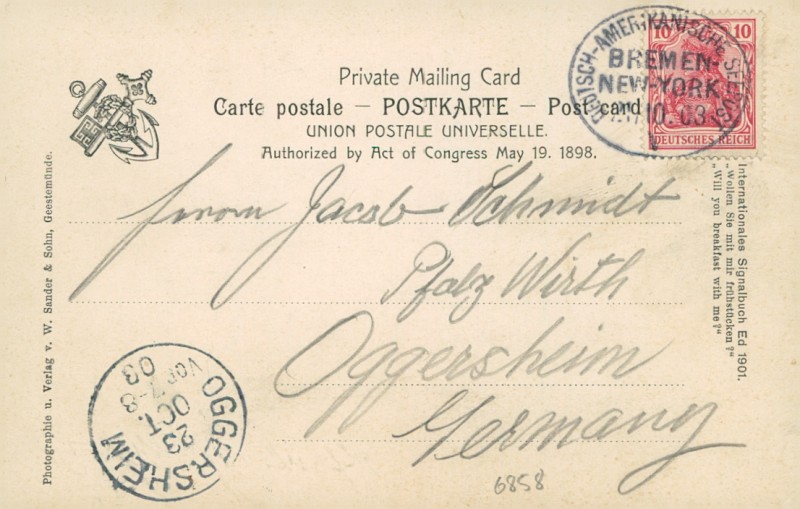 Private Mailing Card
Carte postale — POSTKARTE — Post card
UNION POSTALE UNIVERSELLE.
Authorized by Act of Congress May 19. 1898.
10 10
DEUTSCHES REICH
DEUTSCH-AMERIKANISCHE SEEPOST
BREMEN-
NEW-YORK
10.03
Herrn Jacob Schmidt
Pfalz Wirth
Oggersheim
Germany
Internationales Signalbuch Ed 1901.
„Wollen Sie mit mir frühstücken?"
„Will you breakfast with me?"
Photographie u. Verlag v. W. Sander & Sohn, Geestemünde.
OGGERSHEIM
23
OCT.
7-8
VOR
03
6858